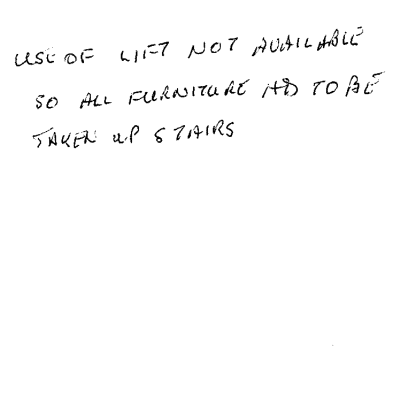 USE OF LIFT NOT AVAILABLE
SO ALL FURNITURE HD TO BE
TAKEN UP STAIRS